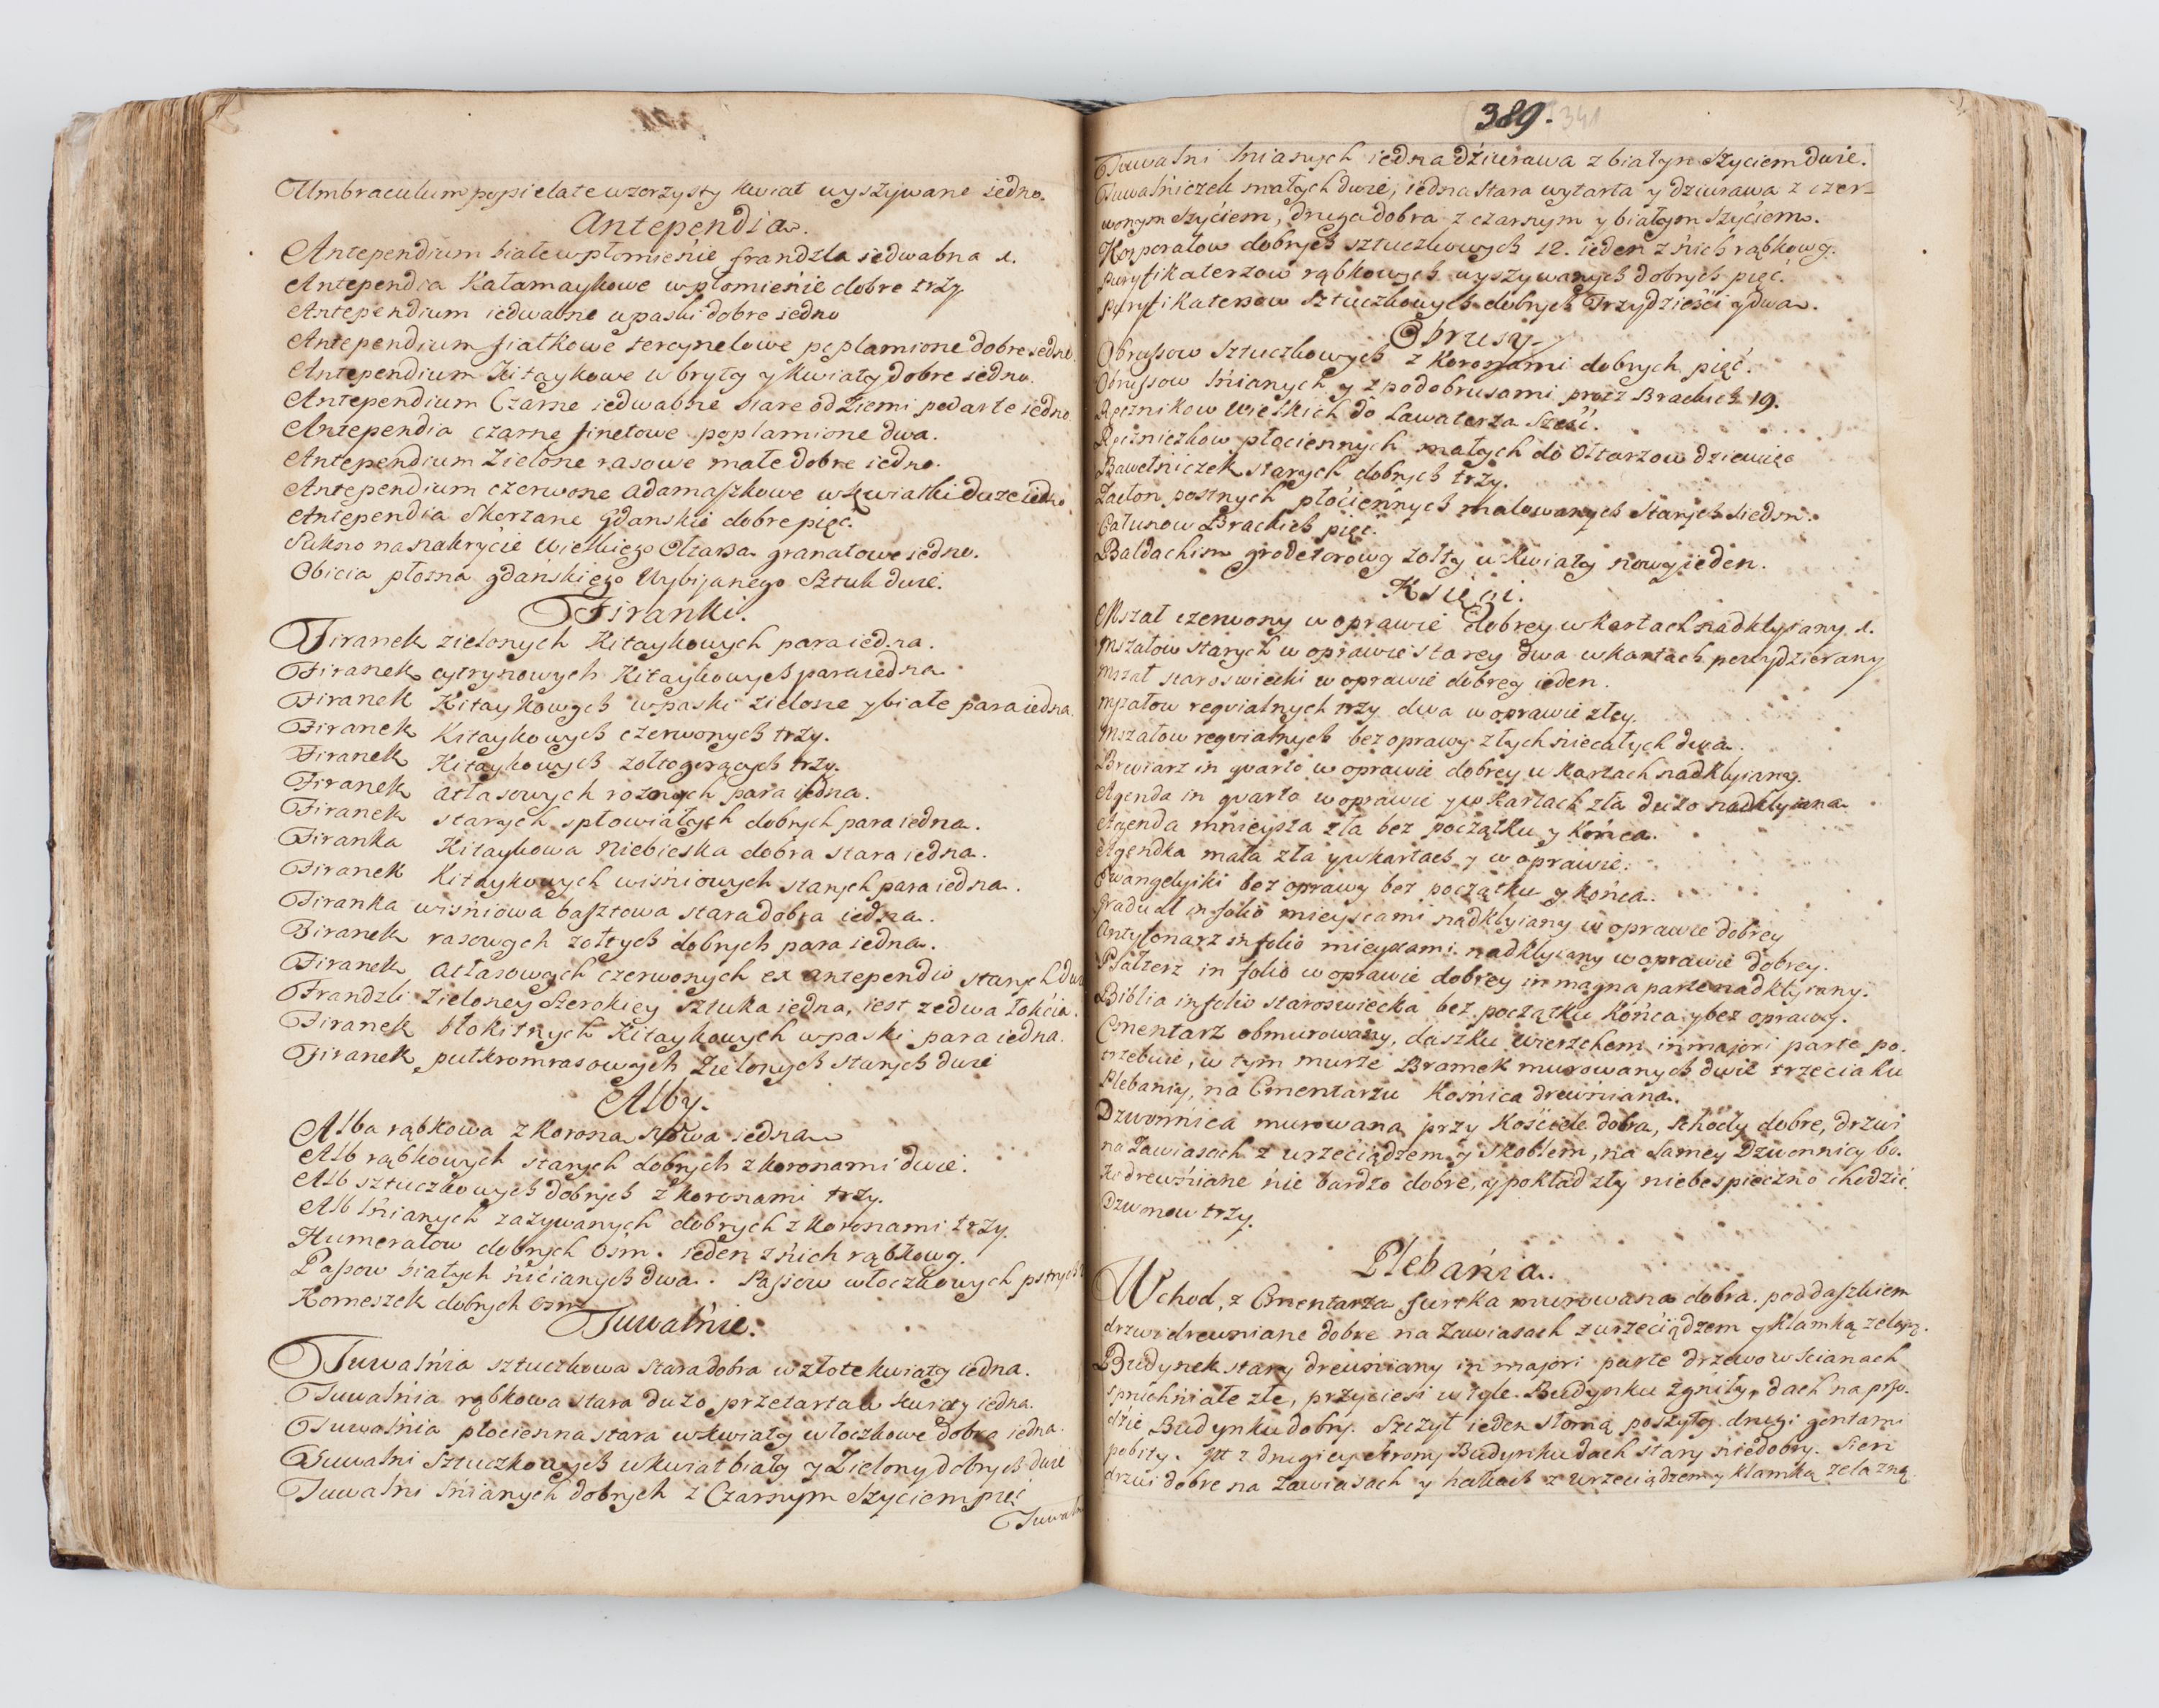 Umbraculum popielate wzorzysty kwiat wyszywane iedno.
Antependia.
Antependium białe w płomienie frandzla iedwabna 1.
Antependia Kałamaykowe w płomienie dobre trzy
Antependium iedwabne w paski dobre iedno
Antependium fiałkowe tercynelowe poplamione dobre iedno.
Antependium Kitaykowe w bryty y kwiaty dobre iedno.
Antependium Czarne iedwabne stare od Ziemi podarte iedno
Antependia czarne finetowe poplamione dwa.
Antependium Zielone rasowe małe dobre iedno.
Antependium czerwone adamaszkowe w kwiatki duże iedno.
Antependia Skorzane Gdanskie dobre pięc.
Sukno na nakrycie Wielkiego Ołtarza granatowe iedno.
Obicia płotna gdańskiego Wybijanego Sztuk dwie.
Firanki.
Firanek zielonych Kitaykowych para iedna.
Firanek cytrynowych Kitaykowych para iedna
Firanek Kitaykowych w paski zielone y białe para iedna.
Firanek Kitaykowych czerwonych trzy.
Firanek Kitaykowych zołtogorących trzy.
Firanek atłasowych roznych para iedna.
Firanek starych spłowiałych dobrych para iedna.
Firanka Kitaykowa Niebieska dobra stara iedna.
Firanek Kitaykowych wiśniowych starych para iedna.
Firanka wiśniowa basztowa stara dobra iedna.
Firanek rasowych zołtych dobrych para iedna.
Firanek atłasowych czerwonych ex antependio starych
Frandzli Zieloney Szerokiey Sztuka iedna, iest ze dwa łokcia.
Firanek błokitnych Kitaykowych w paski para iedna.
Firanek pułkromrasowych Zielonych starych dwie
Alby.
Alba rąbkowa z Korona nowa iedna
Alb rąbkowych starych dobrych z koronami dwie.
Alb sztuczkowych dobrych z koronami trzy.
Alb lnianych zazywanych dobrych z koronami trzy
Humerałow dobrych ośm. ieden z nich rąbkowy.
Passow białych nicianych dwa. Passow włoczkowych pstrych
Komeszek dobrych osm
Tuwalnie.
Tuwalnia sztuczkowa stara dobra w złote kwiaty iedna.
Tuwalnia rąbkowa stara duzo przetarta w kwiaty iedna.
Tuwalnia płocienna stara w kwiaty włoczkowe dobra iedna.
Tuwalni Sztuczkowych w kwiat biały y Zielony dobrych dwie
Tuwalni lnianych dobrych z Czarnym Szyciem pięć
Tuwaln
389. 341
Tuwalni lnianych iedna dziurawa z białym Szyciem dwie.
Tuwalniczek małych dwie, iedna stara wytarta y dziurawa z czer-
wonym szyciem, druga dobra z czarnym y białym szyciem.
Korporałow dobrych sztuczkowych 12. ieden z nich rąbkowy.
Puryfikaterzow rąbkowych wyszywanych dobrych pięć.
Puryfikaterzow Sztuczkowych dobrych Trzydzieści y dwa.
Obrusy.
Obrussow Sztuczkowych z Koronami dobrych pięć.
Obrussow lnianych y z podobrusami prócz Brackich 19.
Ręcznikow Wielkich do Lawaterza Sześć.
Ręczniczkow płociennych małych do Ołtarzow dziewięc
Bawełniczek starych dobrych trzy.
Zasłon postnych płociennych malowanych Starych siedm.
Całunow Brackich pięc.
Baldachim grodetorowy zołty w kwiaty nowy ieden.
Księgi.
Mszał czerwony w oprawie dobrey w kartach nadklyiany 1.
Mszałow starych w oprawie starey dwa w kartach powydzierany
Mszał staroswiecki w oprawie dobrey ieden.
Mszałow reqvialnych trzy dwa w oprawie złey.
Mszałow reqvialnych bez oprawy złych niecałych dwa.
Brewiarz in qvarto w oprawie dobrey w kartach nadklyiany.
Agenda in qvarto w oprawie y w kartach zła duzo nadklyiana
Agenda mnieysza zła bez początku y końca.
Agendka mała zła y w kartach y w oprawie.
Ewangelyiki bez oprawy bez początku y końca.
Graduał in folio mieyscami nadklyiany w oprawie dobrey
Antyfonarz in folio mieyscami nadklyiany w oprawie dobrey.
Psałterz in folio w oprawie dobrey in magna parte nadklyiany.
Biblia in folio staroswiecka bez początku końca y bez oprawy.
Cmentarz obmurowany, daszku wierzchem in majori parte po-
trzebuie, w tym murze Bramek murowanych dwie trzecia ku
Plebaniey, na Cmentarzu Kośnica drewniana.
Dzwonnica murowana przy Kościele dobra, schody dobre, drzwi
na Zawiasach z wrzeciądzem y skoblem, na samey Dzwonnicy bo-
ki drewniane nie bardzo dobre, y pokład zły niebespieczno chodzić.
Dzwonow trzy.
Plebania.
Wchod, z Cmentarza furtka murowana dobra pod daszkiem
drzwi drewniane dobre na Zawiasach z wrzeciądzem y klamką zelazą.
Budynek stary drewniany in majori parte drzewo w Scianach
spruchniałe złe, przyciesi w tyle Budynku zgniły, dach na przo-
dzie Budynku dobry. Szczyt ieden słomą poszyty drugi gontami
pobity. z drugiey strony Budynku dach stary niedobry. Sien
drzwi dobre na Zawiasach y hakach z Wrzeciądzem y klamką zelazną.